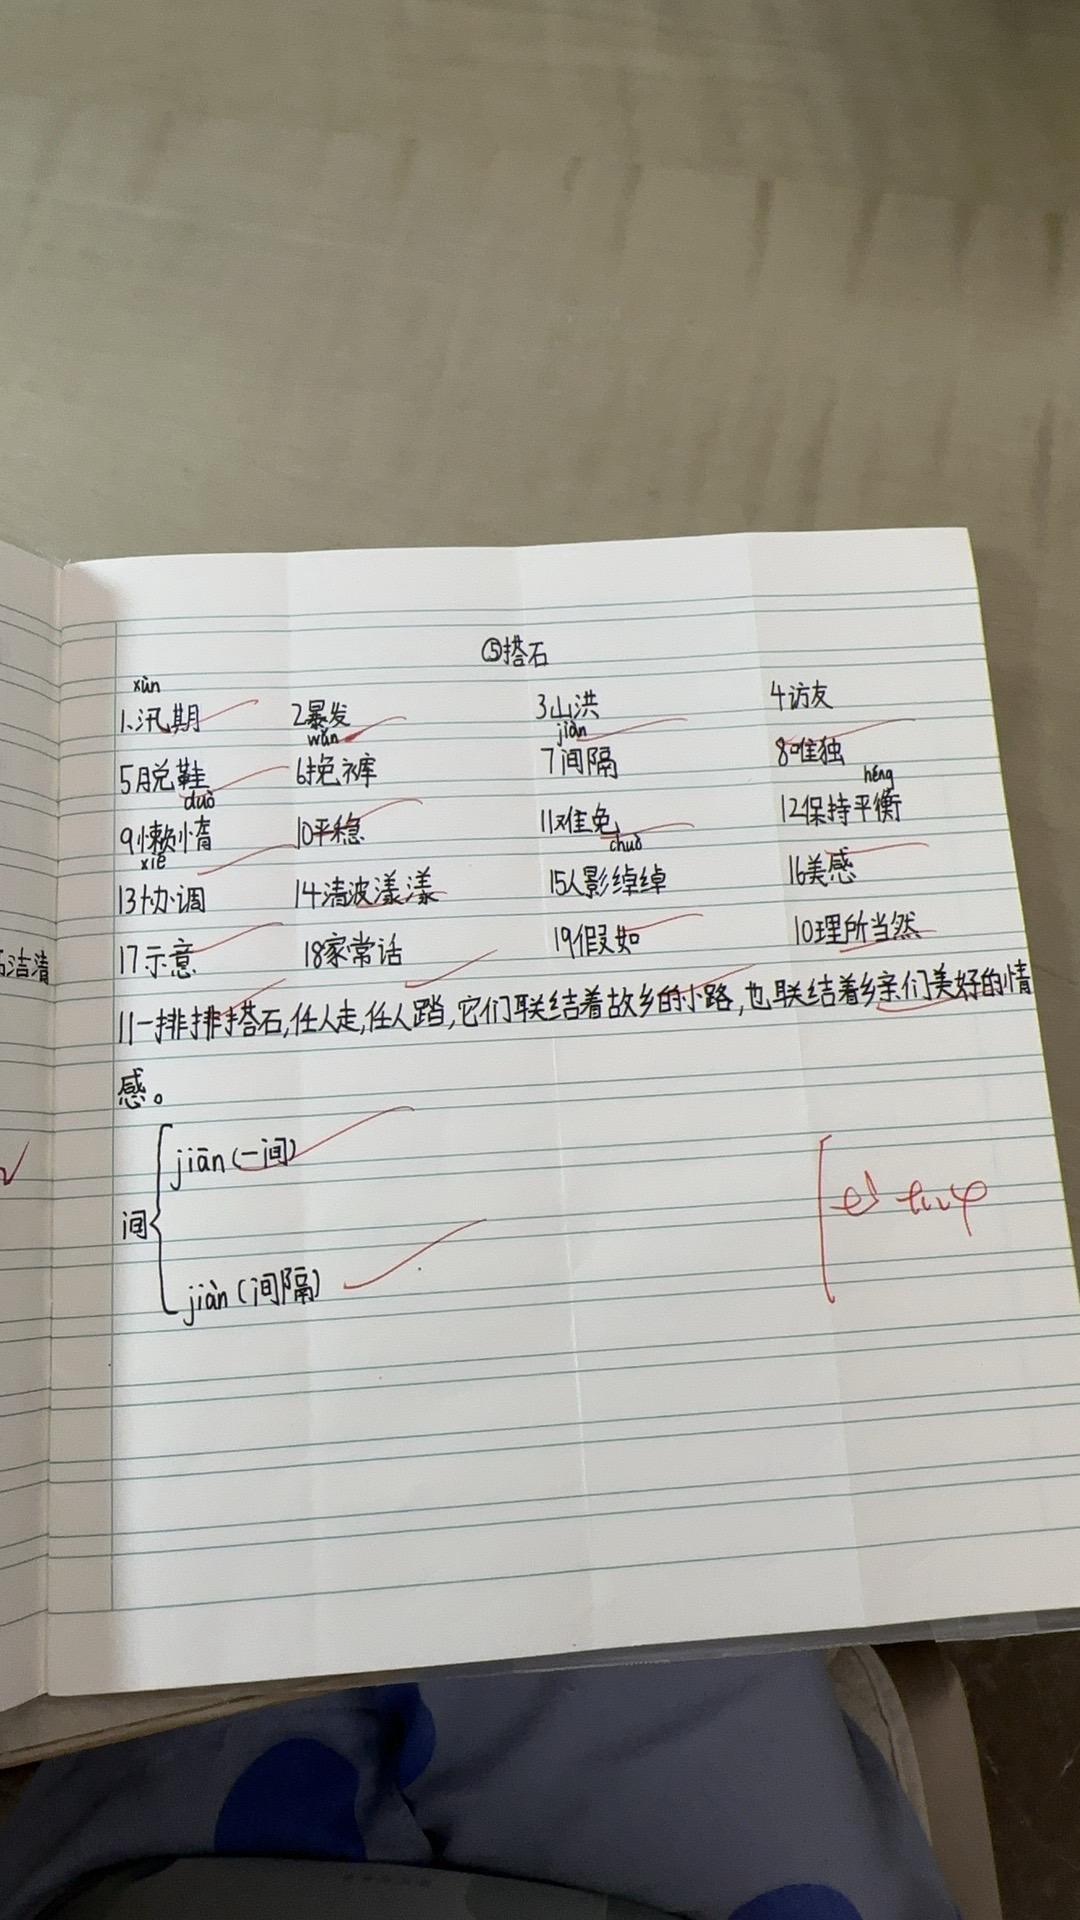 ⑤搭石
xùn
1.汛期 2暴发 3山洪 4访友
wǎn jiàn
5脱鞋 6挽裤 7间隔 8唯独
duò héng
9懒惰 10平稳 11难免 12保持平衡
xié chuò
13协调 14清波漾漾 15人影绰绰 16美感
17示意 18家常话 19假如 10理所当然
11一排排搭石,任人走,任人踏,它们联结着故乡的小路,也联结着乡亲们美好的情
感。
jiān(一间)
间
jiàn(间隔)
洁清